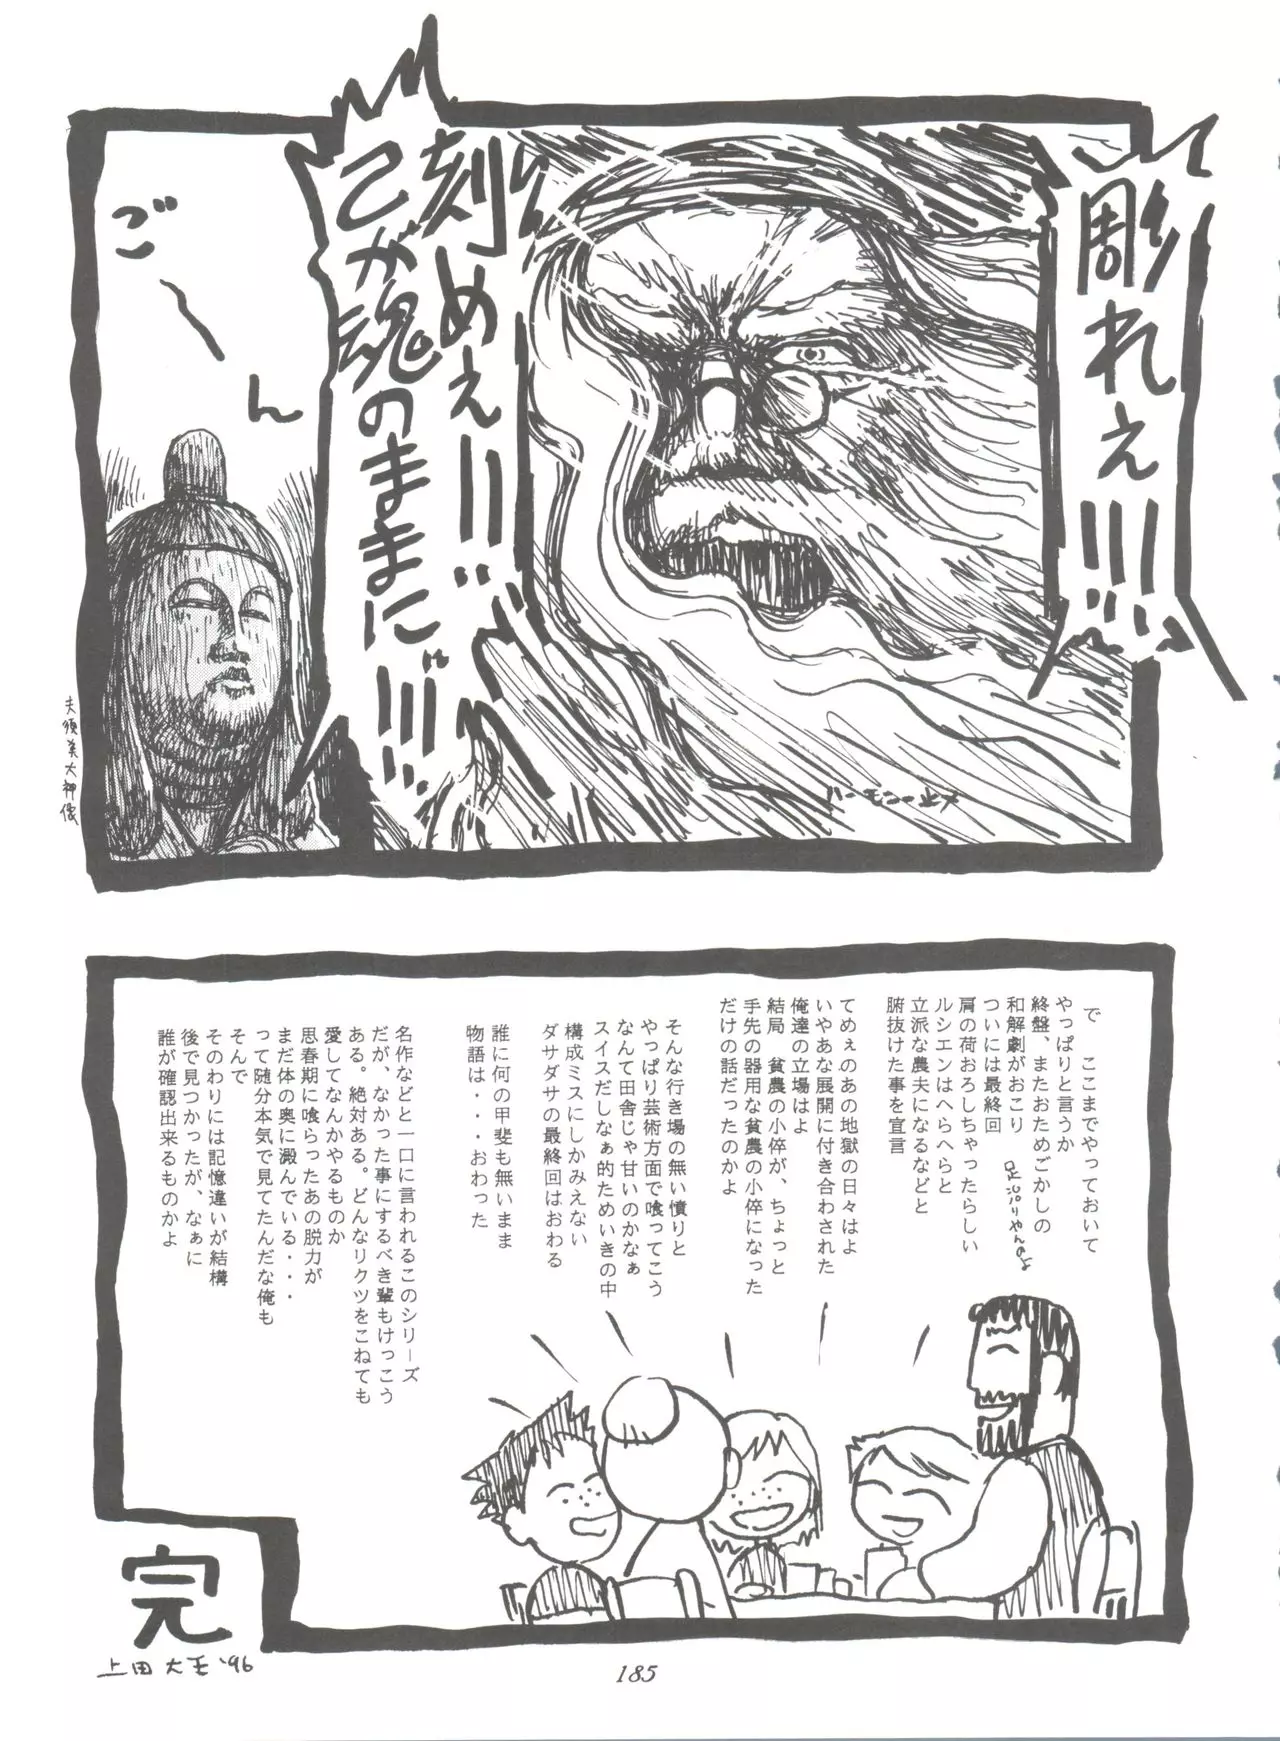 彫れぇ!!!
刻めぇ!!
己が魂のままに!!!
ご〜ん
夫須美大神像
で　ここまでやっておいて
やっぱりと言うか
終盤、またおためごかしの
和解劇がおこり
ついには最終回
肩の荷おろしちゃったらしい
ルシエンはへらへらと
立派な農夫になるなどと
腑抜けた事を宣言
てめぇのあの地獄の日々はよ
いやあな展開に付き合わされた
俺達の立場はよ
結局　貧農の小倅が、ちょっと
手先の器用な貧農の小倅になった
だけの話だったのかよ
そんな行き場の無い憤りと
やっぱり芸術方面で喰ってこう
なんて田舎じゃ甘いのかなぁ
スイスだしなぁ的ためいきの中
構成ミスにしかみえない
ダサダサの最終回はおわる
誰に何の甲斐も無いまま
物語は・・・おわった
名作などと一口に言われるこのシリーズ
だが、なかった事にするべき輩もけっこう
ある。絶対ある。どんなリクツをこねても
愛してなんかやるものか
思春期に喰らったあの脱力が
まだ体の奥に澱んでいる・・・
って随分本気で見てたんだな俺も
そんで
そのわりには記憶違いが結構
後で見つかったが、なぁに
誰が確認出来るものかよ
完
上田大王'96
185